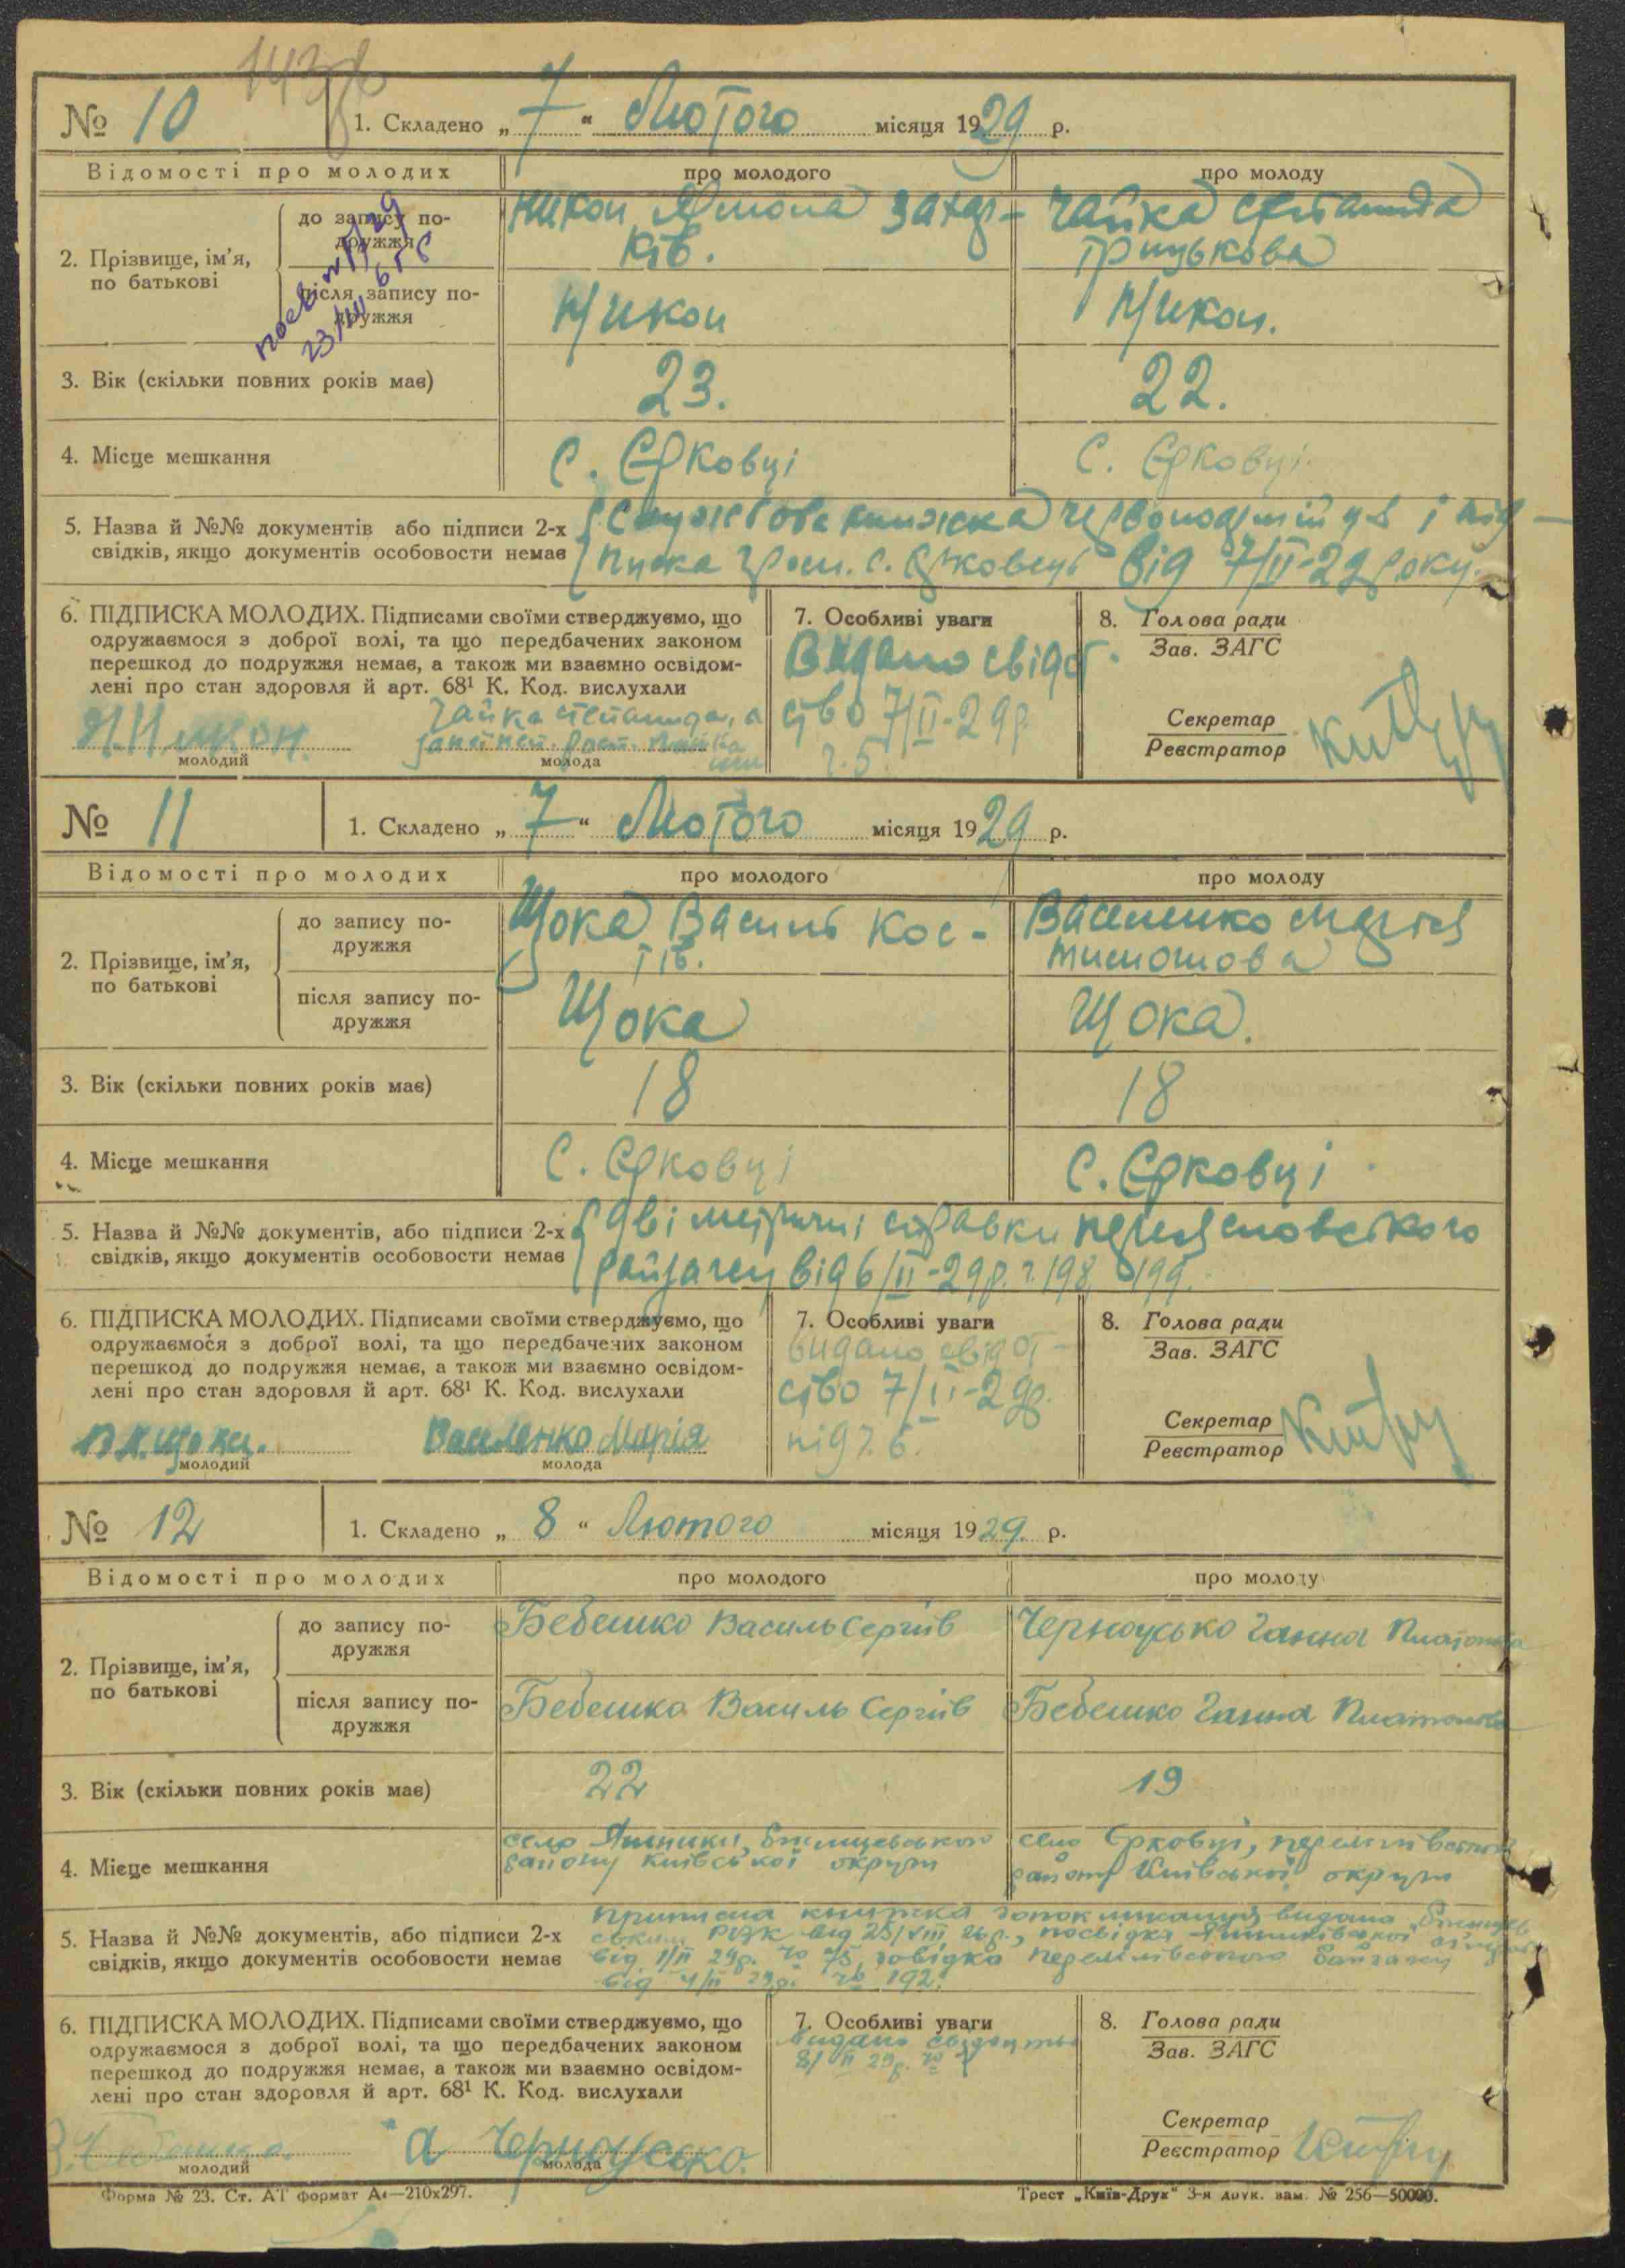 143
№ 10 1. Складено „ 7 “ Лютого місяця 1929 р.
Відомості про молодих про молодого про молоду
2. Прізвище, ім’я, по батькові
до запису подружжя
Чайка Степанида
ків. Грицькова
після запису подружжя
3. Вік (скільки повних років має) 23. 22.
4. Місце мешкання с. Єрковці с. Єрковці
5. Назва й №№ документів або підписи 2-х
свідків, якщо документів особовости немає
Службова книжка і під-
писка с. Єрковець від 7/II-29 року.
6. ПІДПИСКА МОЛОДИХ. Підписами своїми стверджуємо, що
одружаємося з доброї волі, та що передбачених законом
перешкод до подружжя немає, а також ми взаємно освідом-
лені про стан здоровля й арт. 68¹ К. Код. вислухали
Чайка Степанида, а
молодий молода
7. Особливі уваги
Видано свідот-
ство 7/II-29р.
ч. 5.
8. Голова ради
Зав. ЗАГС
Секретар
Реєстратор
№ 11 1. Складено „ 7 “ Лютого місяця 1929 р.
Відомості про молодих про молодого про молоду
2. Прізвище, ім’я, по батькові
до запису подружжя
Щока Василь Кос- Василенко Марія
тів. Тимошова
після запису подружжя
Щока Щока.
3. Вік (скільки повних років має) 18 18
4. Місце мешкання с. Єрковці с. Єрковці
5. Назва й №№ документів, або підписи 2-х
свідків, якщо документів особовости немає
дві метричні справки Переяславського
райзагсу від 6/II-29р. ч. 198, 199.
6. ПІДПИСКА МОЛОДИХ. Підписами своїми стверджуємо, що
одружаємося з доброї волі, та що передбачених законом
перешкод до подружжя немає, а також ми взаємно освідом-
лені про стан здоровля й арт. 68¹ К. Код. вислухали
В.К. Щока. Василенко Марія
молодий молода
7. Особливі уваги
видано свідот-
ство 7/II-29р.
під ч. 6.
8. Голова ради
Зав. ЗАГС
Секретар
Реєстратор
№ 12 1. Складено „ 8 “ Лютого місяця 1929 р.
Відомості про молодих про молодого про молоду
2. Прізвище, ім’я, по батькові
до запису подружжя
Бебешко Василь Сергіїв Черноусько Ганна Платонова
після запису подружжя
Бебешко Василь Сергіїв Бебешко Ганна Платонова
3. Вік (скільки повних років має) 22 19
4. Місце мешкання
село
району Київської округи
село Єрковці,
району Київської округи
5. Назва й №№ документів, або підписи 2-х
свідків, якщо документів особовости немає
Приписна книжка видана
РВК від 25/VIII 26р., посвідка
від 1/II 29р. № 75, довідка
від 4/II 29р. № 192.
6. ПІДПИСКА МОЛОДИХ. Підписами своїми стверджуємо, що
одружаємося з доброї волі, та що передбачених законом
перешкод до подружжя немає, а також ми взаємно освідом-
лені про стан здоровля й арт. 68¹ К. Код. вислухали
Черноусько.
молодий молода
7. Особливі уваги
видано
8/II 29р. № 7
8. Голова ради
Зав. ЗАГС
Секретар
Реєстратор
Форма № 23. Ст. АТ формат А4—210х297. Трест „Київ-Друк“ 3-я друк. зам. № 256—50000.